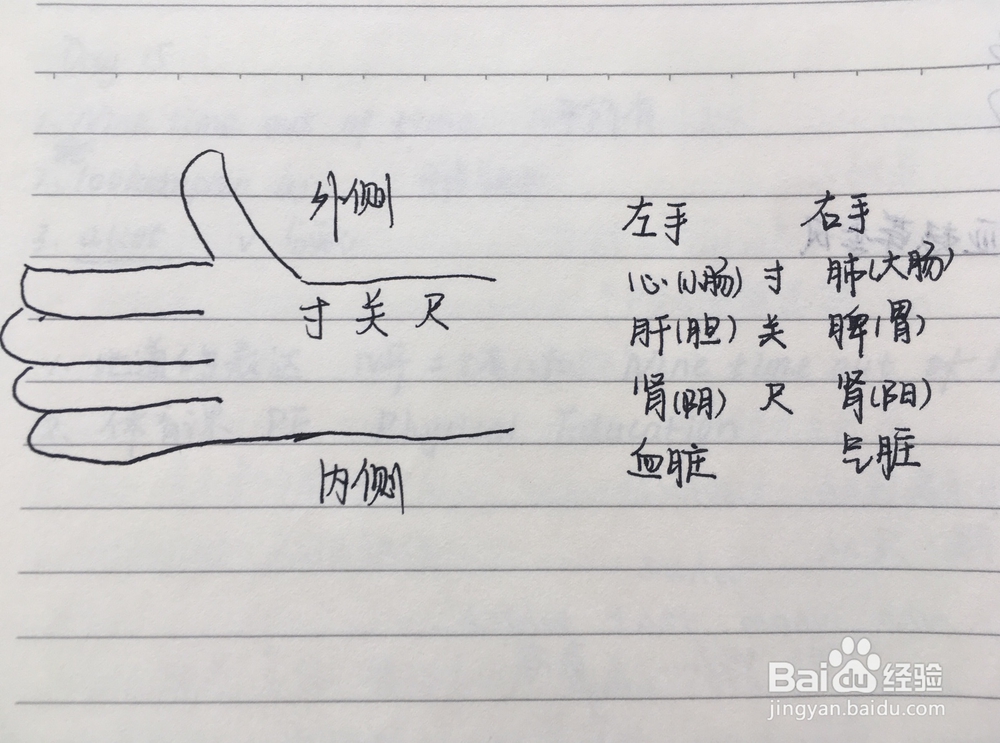 外侧
寸 关 尺
内侧
左手 右手
心(小肠) 寸 肺(大肠)
肝(胆) 关 脾(胃)
肾(阴) 尺 肾(阳)
血脏 气脏
Baidu经验
jingyan.baidu.com